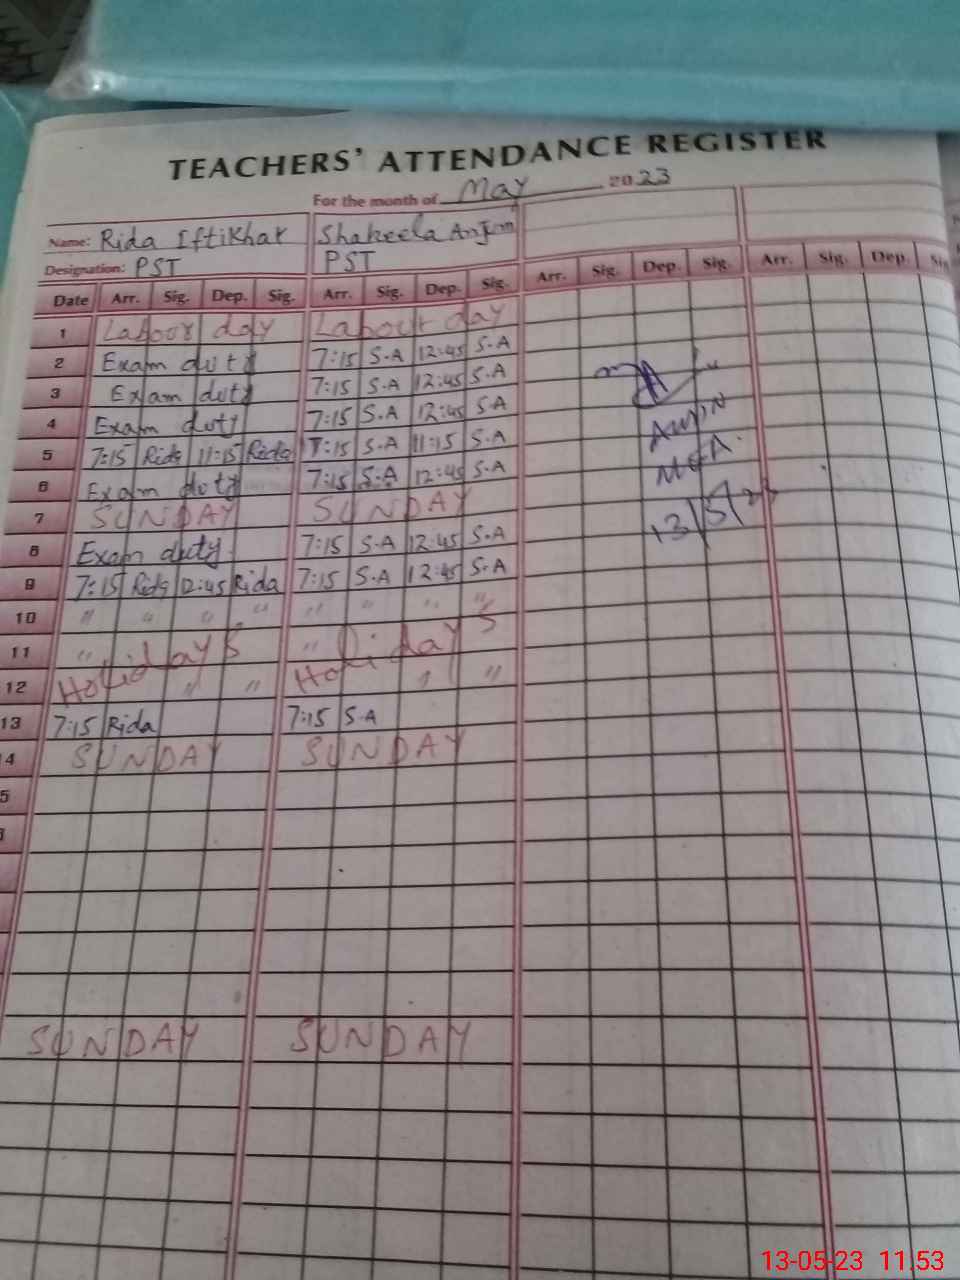 TEACHERS' ATTENDANCE REGISTER
For the month of May 2023
Name: Rida Iftikhar Shakeela Anjum
Designation: PST PST
Date Arr. Sig. Dep. Sig. Arr. Sig. Dep. Sig. Arr. Sig. Dep. Sig. Arr. Sig. Dep.
1 Labour day Labour day
2 Exam duty 7:15 S.A 12:45 S.A
3 Exam duty 7:15 S.A 12:45 S.A
4 Exam duty 7:15 S.A 12:45 S.A
5 7:15 Rida 11:15 Rida 7:15 S.A 11:15 S.A
6 Exam duty 7:15 S.A 12:45 S.A
7 SUNDAY SUNDAY
8 Exam duty 7:15 S.A 12:45 S.A
9 7:15 Rida 12:45 Rida 7:15 S.A 12:45 S.A
10 " " " " " " " "
11 " Holidays " Holidays
12 " " " "
13 7:15 Rida 7:15 S.A
4 SUNDAY SUNDAY
5
SUNDAY SUNDAY
MEA
13/5/23
13-05-23 11.53